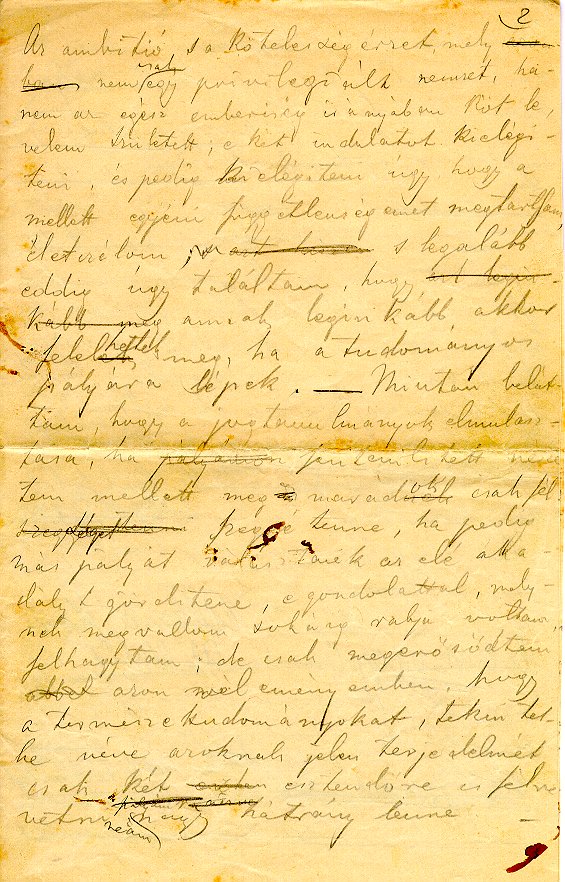 2
Az ambitió, s a kötelességérzet, mely
nem csak egy privilegiált nemzet, ha-
nem az egész emberiség irányában köt le,
velem született; e két indulatot kielégi-
teni, és pedig kielégiteni úgy, hogy a
mellett egyéni függetlenségemet megtartsam,
életczélom, s legalább
eddig úgy találtam, hogy
annak leginkább akkor
felelhetek meg, ha a tudományos
pályára lépek. — Miután belát-
tam, hogy a jogtanulmányok elmulasz-
tása, ha jentemlitett
tem mellett meg maradok csak fél-
szeggé tenne, ha pedig
más pályát választanék az elé aka-
dályt gördítene, e gondolattal, mely-
nek megvallom sokáig rabja voltam,
felhagytam; de csak megerősödtem
azon véleményemben, hogy
a természettudományokat, tekintet-
be véve azoknak jelen terjedelmét
csak két esztendőre is félre
vetni reám nagy hátrány lenne —